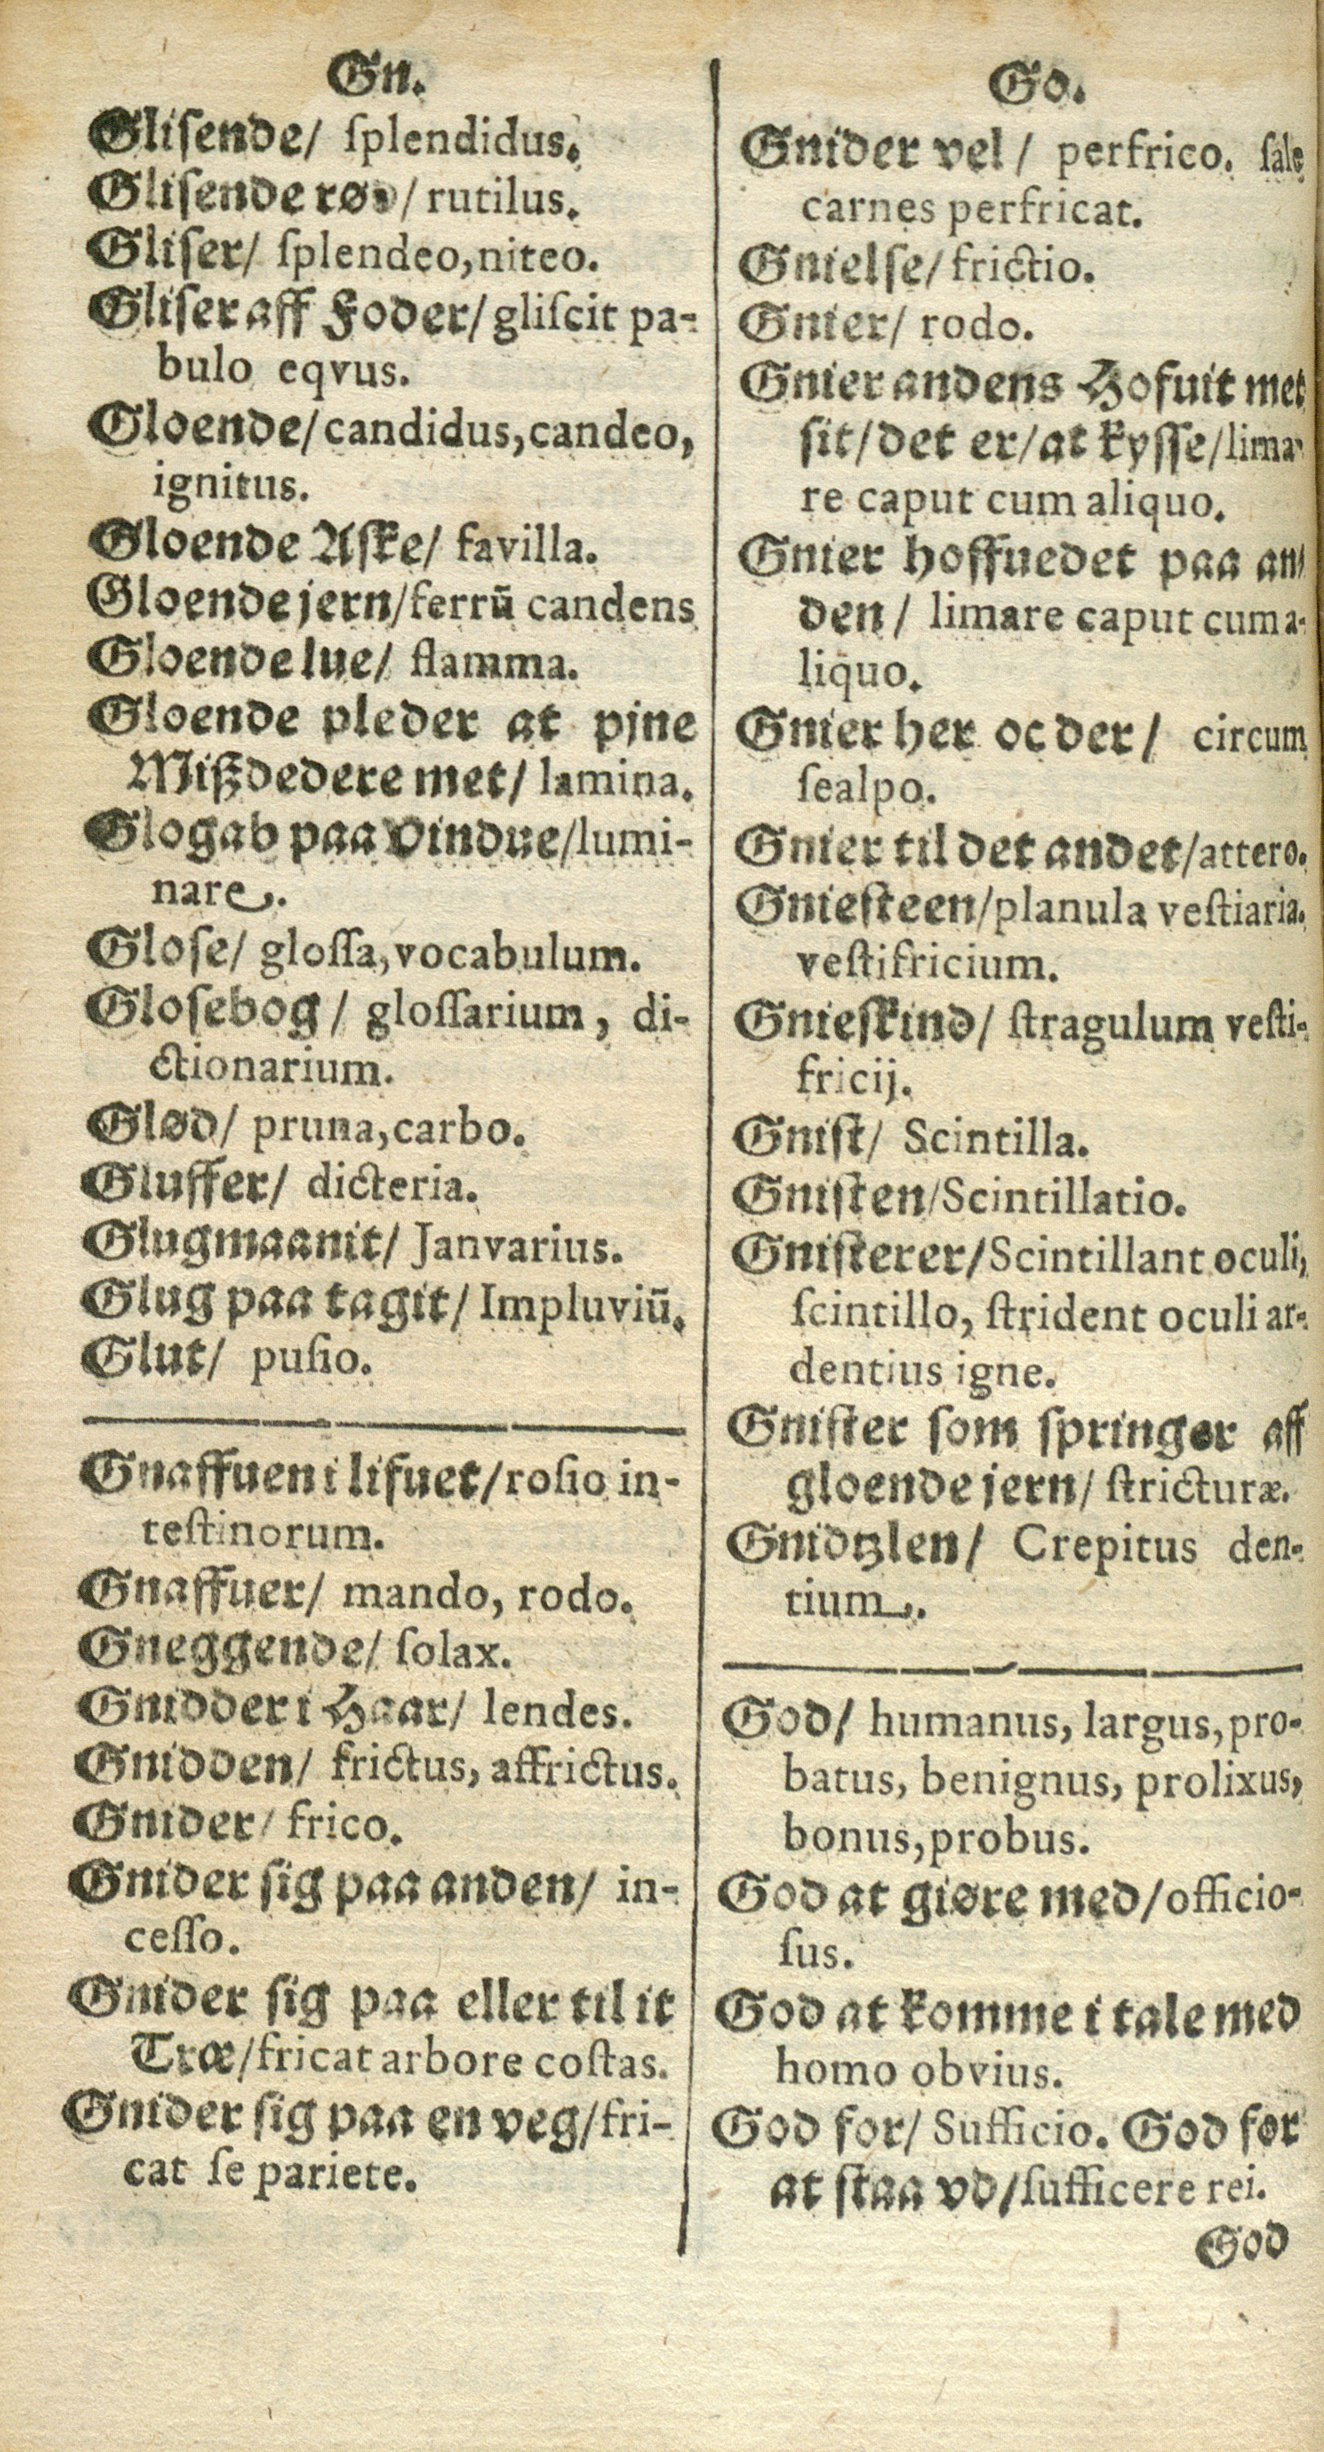 Gn.
Gliſende/ ſplendidus.
Gliſende rød/ rutilus.
Gliſer/ ſplendeo, niteo.
Gliſer aff Foder/ gliſcit pa-
bulo eqvus.
Gloende/ candidus, candeo,
ignitus.
Gloende Aſke/ favilla.
Gloende jern/ ferrū candens
Gloende lue/ flamma.
Gloende pleder at pjne
Mißdedere met/ lamina.
Glogab paa Vindue/ lumi-
nare.
Gloſe/ gloſſa, vocabulum.
Gloſebog/ gloſſarium, di-
ctionarium.
Glød/ pruna, carbo.
Gluffer/ dicteria.
Glugmaanit/ Janvarius.
Glug paa tagit/ Impluviū.
Glut/ puſio.
Gnaffuen i lifuet/ roſio in-
teſtinorum.
Gnaffuer/ mando, rodo.
Gneggende/ ſolax.
Gnidder i Haar/ lendes.
Gnidden/ frictus, affrictus.
Gnider/ frico.
Gnider ſig paa anden/ in-
ceſſo.
Gnider ſig paa eller til it
Træ/ fricat arbore coſtas.
Gnider ſig paa en veg/ fri-
cat ſe pariete.
Go.
Gnider vel/ perfrico. ſale
carnes perfricat.
Gnielſe/ frictio.
Gnier/ rodo.
Gnier andens Hofuit met
ſit/ det er/ at kyſſe/ lima-
re caput cum aliquo.
Gnier hoffuedet paa an-
den/ limare caput cum a-
liquo.
Gnier her oc der/ circum
ſealpo.
Gnier til det andet/ attero.
Gnieſteen/ planula veſtiaria.
veſtifricium.
Gnieſkind/ ſtragulum veſti-
fricij.
Gniſt/ Scintilla.
Gniſten/ Scintillatio.
Gniſterer/ Scintillant oculi,
ſcintillo, ſtrident oculi ar-
dentius igne.
Gniſter ſom ſpringer aff
gloende jern/ ſtricturæ.
Gnidtzlen/ Crepitus den-
tium.
God/ humanus, largus, pro-
batus, benignus, prolixus,
bonus, probus.
God at giøre med/ officio-
ſus.
God at komme i tale med
homo obvius.
God for/ Sufficio. God for
at ſtaa vd/ ſufficere rei.
God